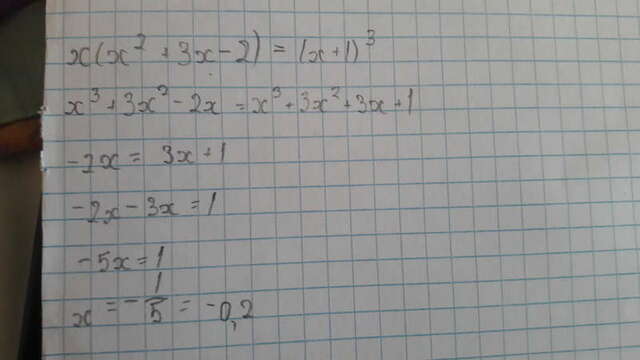 x(x² + 3x - 2) = (x+1)³
x³ + 3x² - 2x = x³ + 3x² + 3x + 1
-2x = 3x + 1
-2x - 3x = 1
-5x = 1
x = -1/5 = -0,2